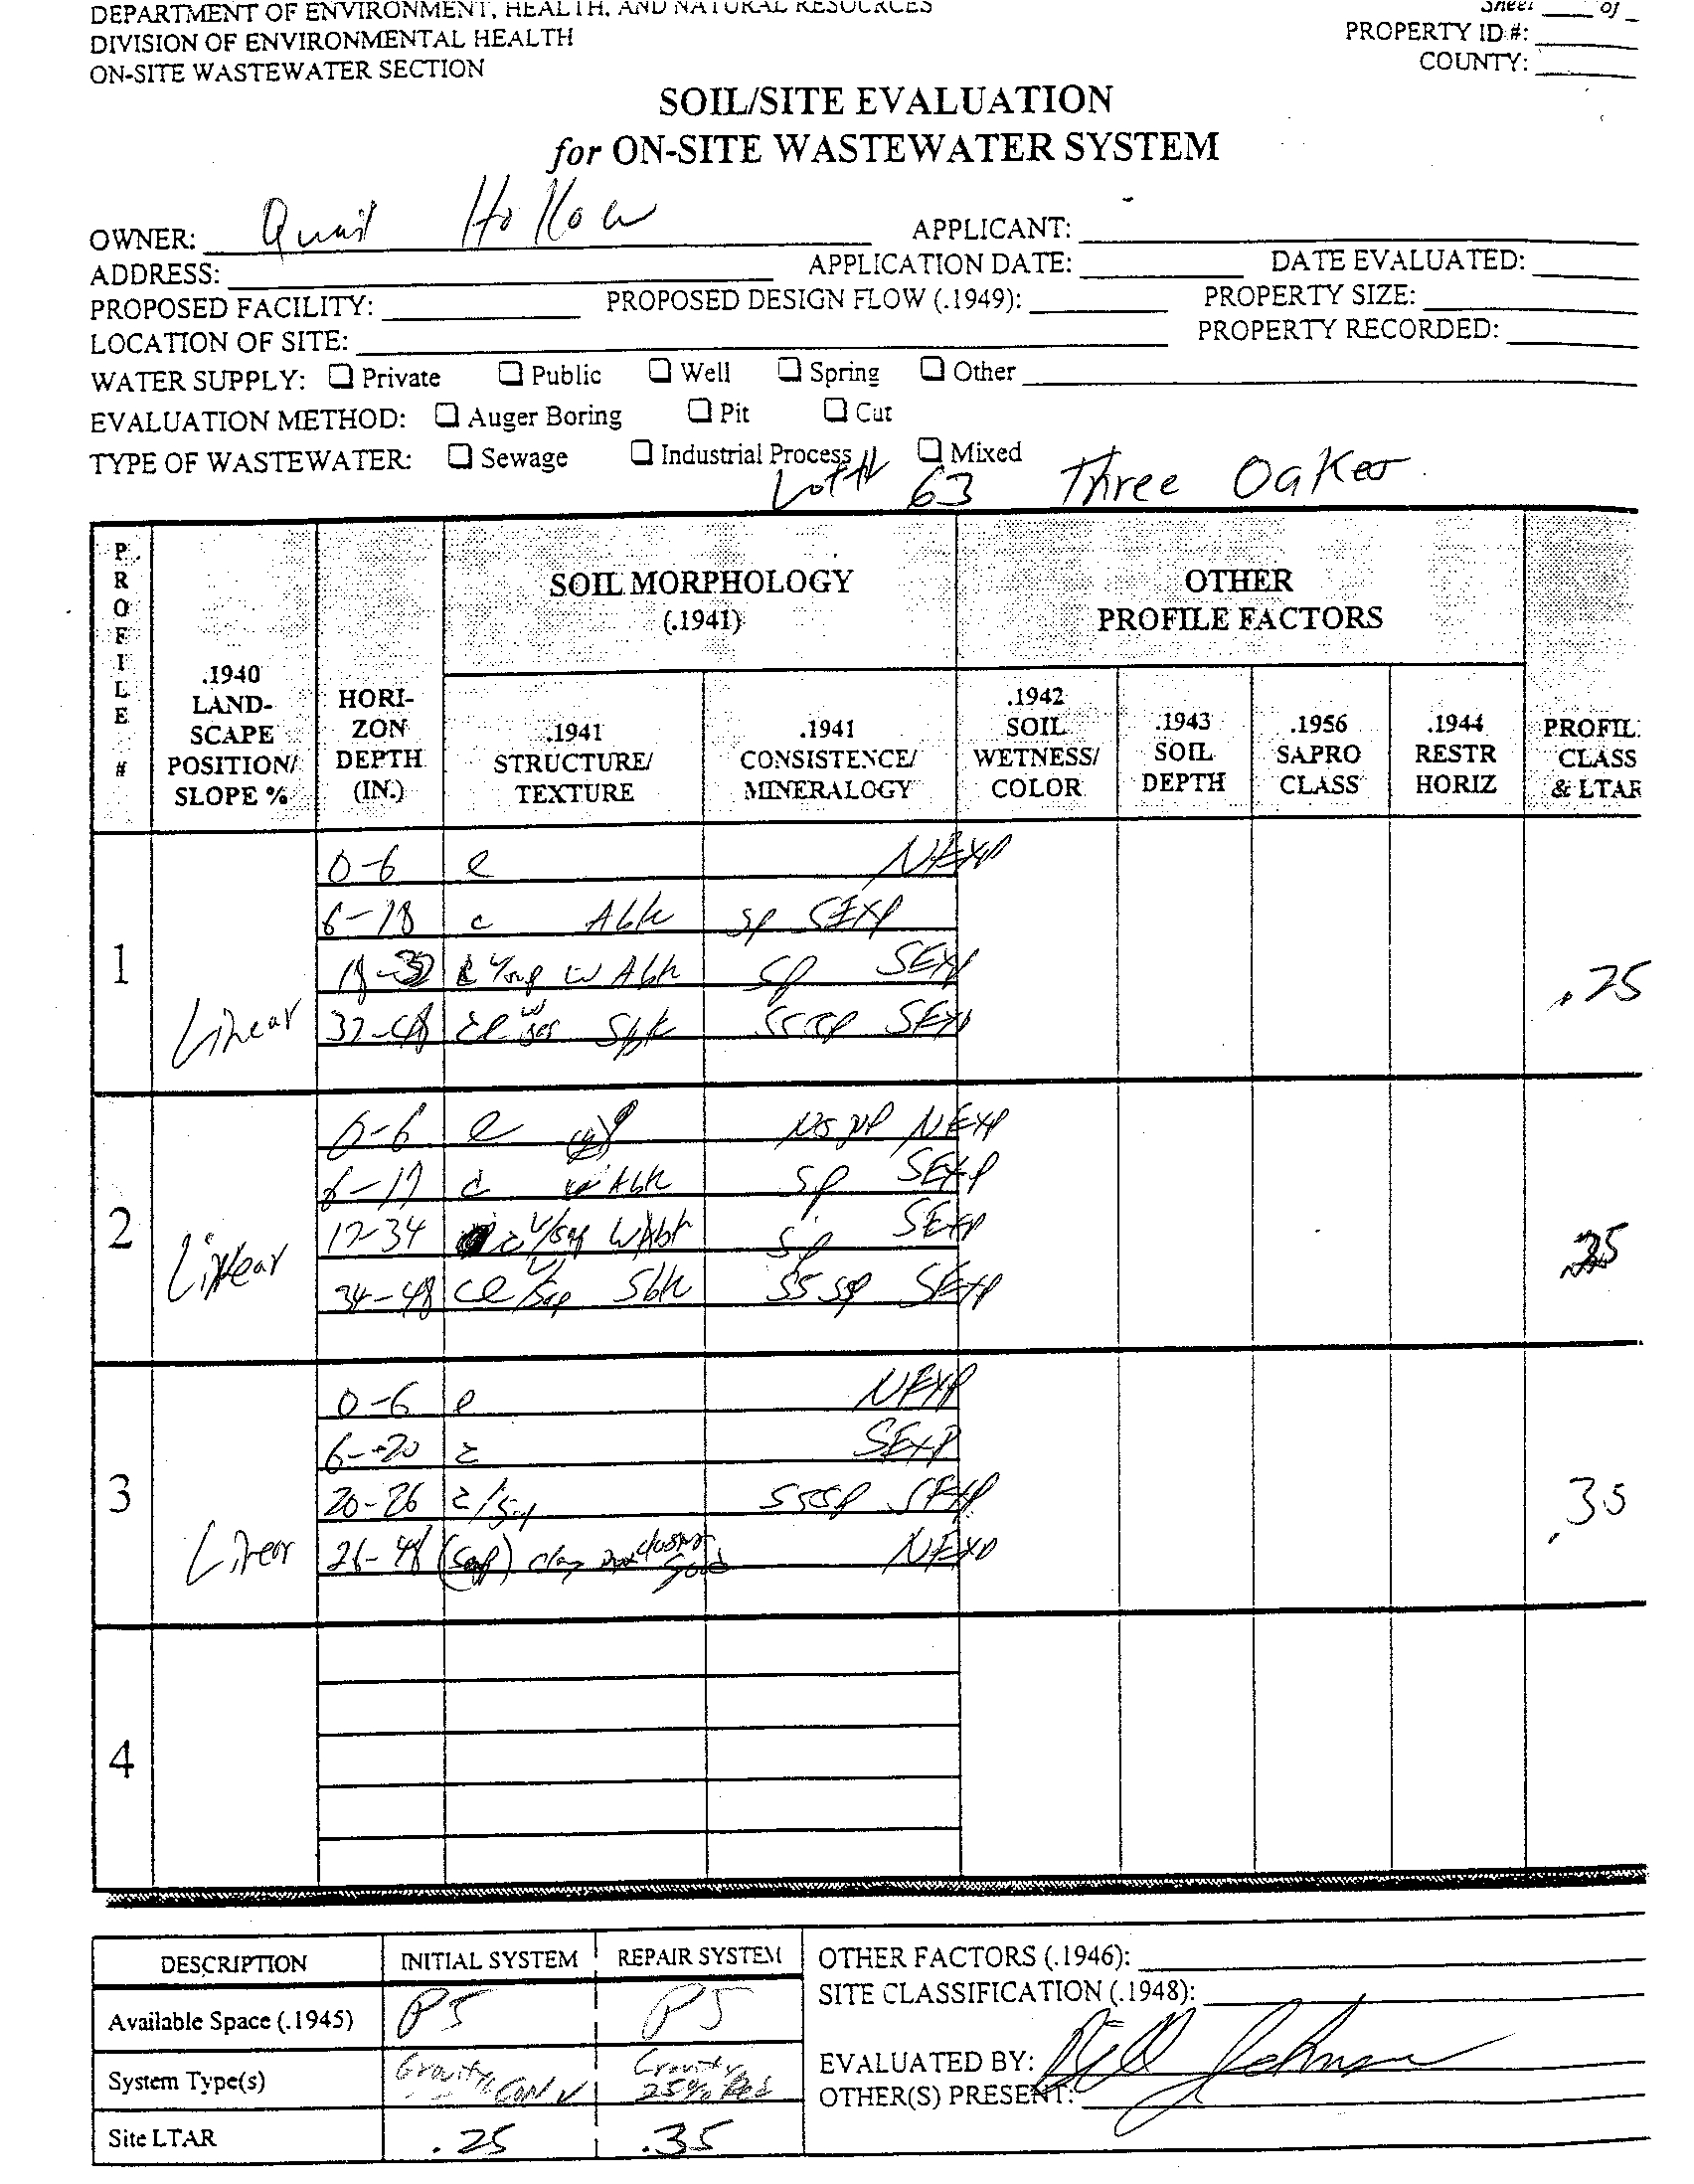 DEPARTMENT OF ENVIRONMENT, HEALTH, AND NATURAL RESOURCES
Sheet ____ of _
DIVISION OF ENVIRONMENTAL HEALTH
PROPERTY ID #:
ON-SITE WASTEWATER SECTION
COUNTY:
SOIL/SITE EVALUATION
for ON-SITE WASTEWATER SYSTEM
OWNER: Quail Hollow APPLICANT:
ADDRESS: APPLICATION DATE: DATE EVALUATED:
PROPOSED FACILITY: PROPOSED DESIGN FLOW (.1949): PROPERTY SIZE:
LOCATION OF SITE: PROPERTY RECORDED:
WATER SUPPLY: ☐ Private ☐ Public ☐ Well ☐ Spring ☐ Other
EVALUATION METHOD: ☐ Auger Boring ☐ Pit ☐ Cut
TYPE OF WASTEWATER: ☐ Sewage ☐ Industrial Process ☐ Mixed
Lot # 63 Three Oakes
PROFILE #
.1940 LAND-SCAPE POSITION/ SLOPE %
HORI-ZON DEPTH (IN.)
SOIL MORPHOLOGY (.1941)
.1941 STRUCTURE/ TEXTURE
.1941 CONSISTENCE/ MINERALOGY
OTHER PROFILE FACTORS
.1942 SOIL WETNESS/ COLOR
.1943 SOIL DEPTH
.1956 SAPRO CLASS
.1944 RESTR HORIZ
PROFIL. CLASS & LTAR
1 Linear .25
0-6 l NEXP
6-18 c Abk sp SEXP
18-32 w Abk sp SEXP
32-48 cl Sbk SSSP SEXP
2 Linear
0-6 l NS NP NEXP
6-17 c w Abk sp SEXP
17-34 c w/sap w Abk sp SEXP
34-48 cl w/sap Sbk SS SP SEXP
3 Linear .35
0-6 l NEXP
6-20 c SEXP
20-26 c/sap SSSP SEXP
26-48 (sap) clay NEXP
4
DESCRIPTION INITIAL SYSTEM REPAIR SYSTEM
Available Space (.1945) PS PS
System Type(s) Gravity CONV Gravity 25% Red
Site LTAR .25 .35
OTHER FACTORS (.1946):
SITE CLASSIFICATION (.1948):
EVALUATED BY: Bill Johnson
OTHER(S) PRESENT: